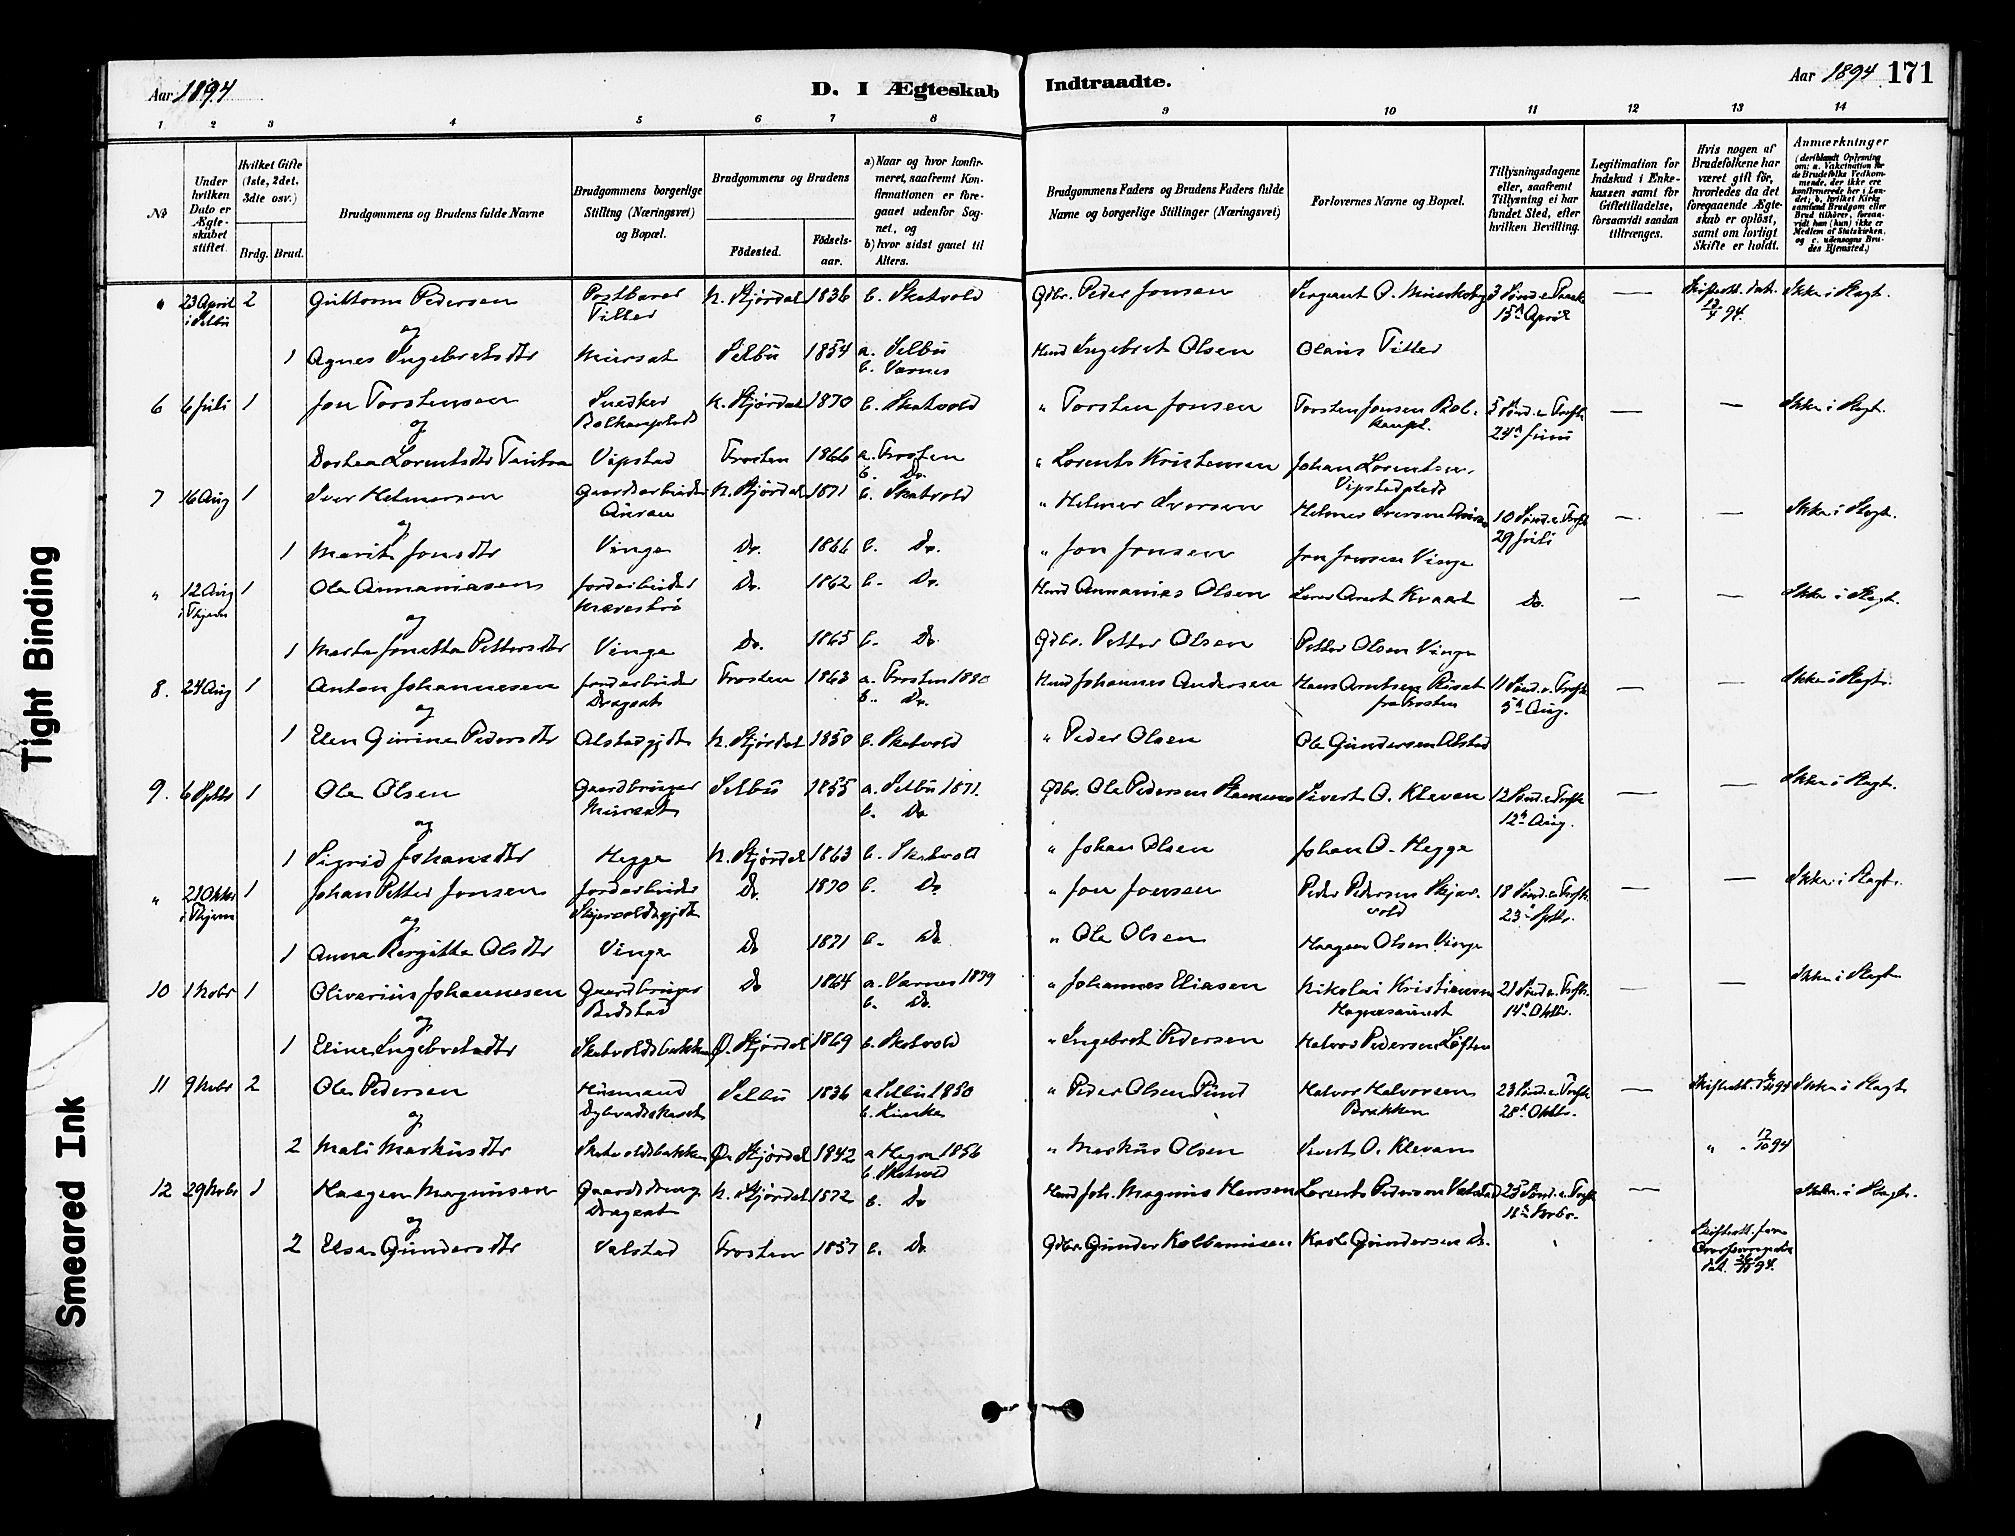 Aar 1894
D. I Ægteskab
Indtraadte.
Aar 1894 171
1 2 3 4 5 6 7 8
9 10 11 12 13 14
No
Under hvilken Dato er Ægteskabet stiftet.
Hvilket Gifte (1ste, 2det, 3die osv.)
Brdg. Brud.
Brudgommens og Brudens fulde Navne
Brudgommens borgerlige Stilling (Næringsvei) og Bopæl.
Brudgommens og Brudens
Födested.
Födselsaar.
a) Naar og hvor konfirmeret, saafremt Konfirmationen er foregaaet udenfor Sognet, og
b) hvor sidst gaaet til Alters.
Brudgommens Faders og Brudens Faders fulde Navne og borgerlige Stillinger (Næringsvei)
Forlovernes Navne og Bopæl.
Tillysningsdagene eller, saafremt Tillysning ei har fundet Sted, efter hvilken Bevilling.
Legitimation for Indskud i Enkekassen samt for Giftetilladelse, forsaavidt saadan tiltrænges.
Hvis nogen af Brudefolkene har været gift før, hvorledes da det foregaaende Ægteskab er oplöst, samt om lovligt Skifte er holdt.
Anmærkninger
" 23 April i Selbu 2 Guttorm Pedersen Postbærer Tiller N. Stjørdal 1836 b. Skatvold Gdbr. Peder Jonsen Sergeant O. 3 Sønd. e. Paaske 15de April — Skifteatt. dat. 94. Ikke i Slægt.
og
1 Agnes Ingebretsdtr Mursat Selbu 1854 a. Selbu b. Værnes Husmd Ingebret Olsen Olaus Tiller
6 6 Juli 1 Jon Torstensen Snedker N. Stjørdal 1870 b. Skatvold " Torsten Jonsen Torsten Jonsen 5 Sønd. e. Trefh. 24de Juni — — Ikke i Slægt.
og
Dorthea Lorentsdtr Tautra Vipstad Frosten 1866 a. Frosten b. Do. " Lorents Kristensen Johan Lorentsen Vipstadplads
7 16 Aug 1 Iver Helmersen Gaardsarbeider Auran N. Stjørdal 1871 b. Skatvold " Helmer Iversen Helmer Iversen Auran 10 Sønd. e. Trefh. 29 Juli — — Ikke i Slægt.
og
1 Marit Jonsdtr Vinge Do. 1866 b. Do. " Jon Jonsen Jon Jonsen Vinge
" 12 Aug 1 Ole Annaniasen Jordarbeider Do. 1862 b. Do. Husmd Annanias Olsen Lærer Kvaart Do. — — Ikke i Slægt.
og
1 Marta Jonetta Pettersdtr Vinge Do. 1865 b. Do. Gdbr. Petter Olsen Petter Olsen Vinge
8. 24 Aug 1 Anton Johannesen Jordarbeider Dragsat Frosten 1863 a. Frosten 1880 b. Do. Husmd Johannes Andersen Hans Arntsen fra Frosten 11 Sønd. e. Trefh. 5te Aug. — — Ikke i Slægt.
og
1 Elen Gurine Pedersdtr Alstadgjdt N. Stjørdal 1850 b. Skatvold " Peder Olsen Ole Gundersen Alstad
9. 6 Sptbr 1 Ole Olsen Gaardbruger Mursat Selbu 1855 a. Selbu 1871. b. Do Gdbr. Ole Pedersen Sivert O. Klevan 12 Sønd. e. Trefh. 12te Aug. — — Ikke i Slægt.
og
1 Sigrid Johansdtr Hegge N. Stjørdal 1863 b. Skatvold " Johan Olsen Johan O. Hegge
" 21 Oktbr 1 Johan Petter Jonsen Jordarbeider Skjervoldsgjdt Do. 1870 b. Do " Jon Jonsen Peder Pedersen Skjervold 18 Sønd. e. Trefh. 23de Sptbr. — — Ikke i Slægt.
og
1 Anna Bergitta Olsdtr Vinge Do 1871 b. Do " Ole Olsen Haagen Olsen Vinge
10 1 Nobr 1 Olivarius Johannesen Gaardbruger Do 1864 a. Værnes 1879 b. Do. " Johannes Eliasen Nikolai Kristiansen 21 Sønd. e. Trefh. 14de Oktbr. — — Ikke i Slægt.
og
1 Eline Ingebretsdtr Skatvoldsbakken Ø. Stjørdal 1869 b. Skatvold " Ingebret Pedersen Halvor Pedersen Løften
11 9 Nobr 2 Ole Pedersen Husmand Selbu 1836 a Selbu 1850 b. " Peder Olsen Halvor Halvorsen Brækken 23 Sønd. e. Trefh. 28de Oktbr. — Skifteatt. 94 Ikke i Slægt
og
2 Mali Markusdtr Skatvoldsbakken Ø. Stjørdal 1842 a Hegra 1856 b. Skatvold " Markus Olsen Sivert O. Klevan " 17/10 94
12 29 Nobr 1 Haagen Magnusen Dragsat N. Stjørdal 1872 b. Do Husmd Joh. Magnus Hansen Lorents Pedersen Valstad 25 Sønd. e. Trefh. 11te Nobr. — Ikke i Slægt.
og
2 Elsa Gundersdtr Valstad Frosten 1857 b. Do Gdbr. Gunder Kolbanusen Karl Gundersen Do. Skifteatt. fra dat. 94.
Tight Binding
Smeared Ink